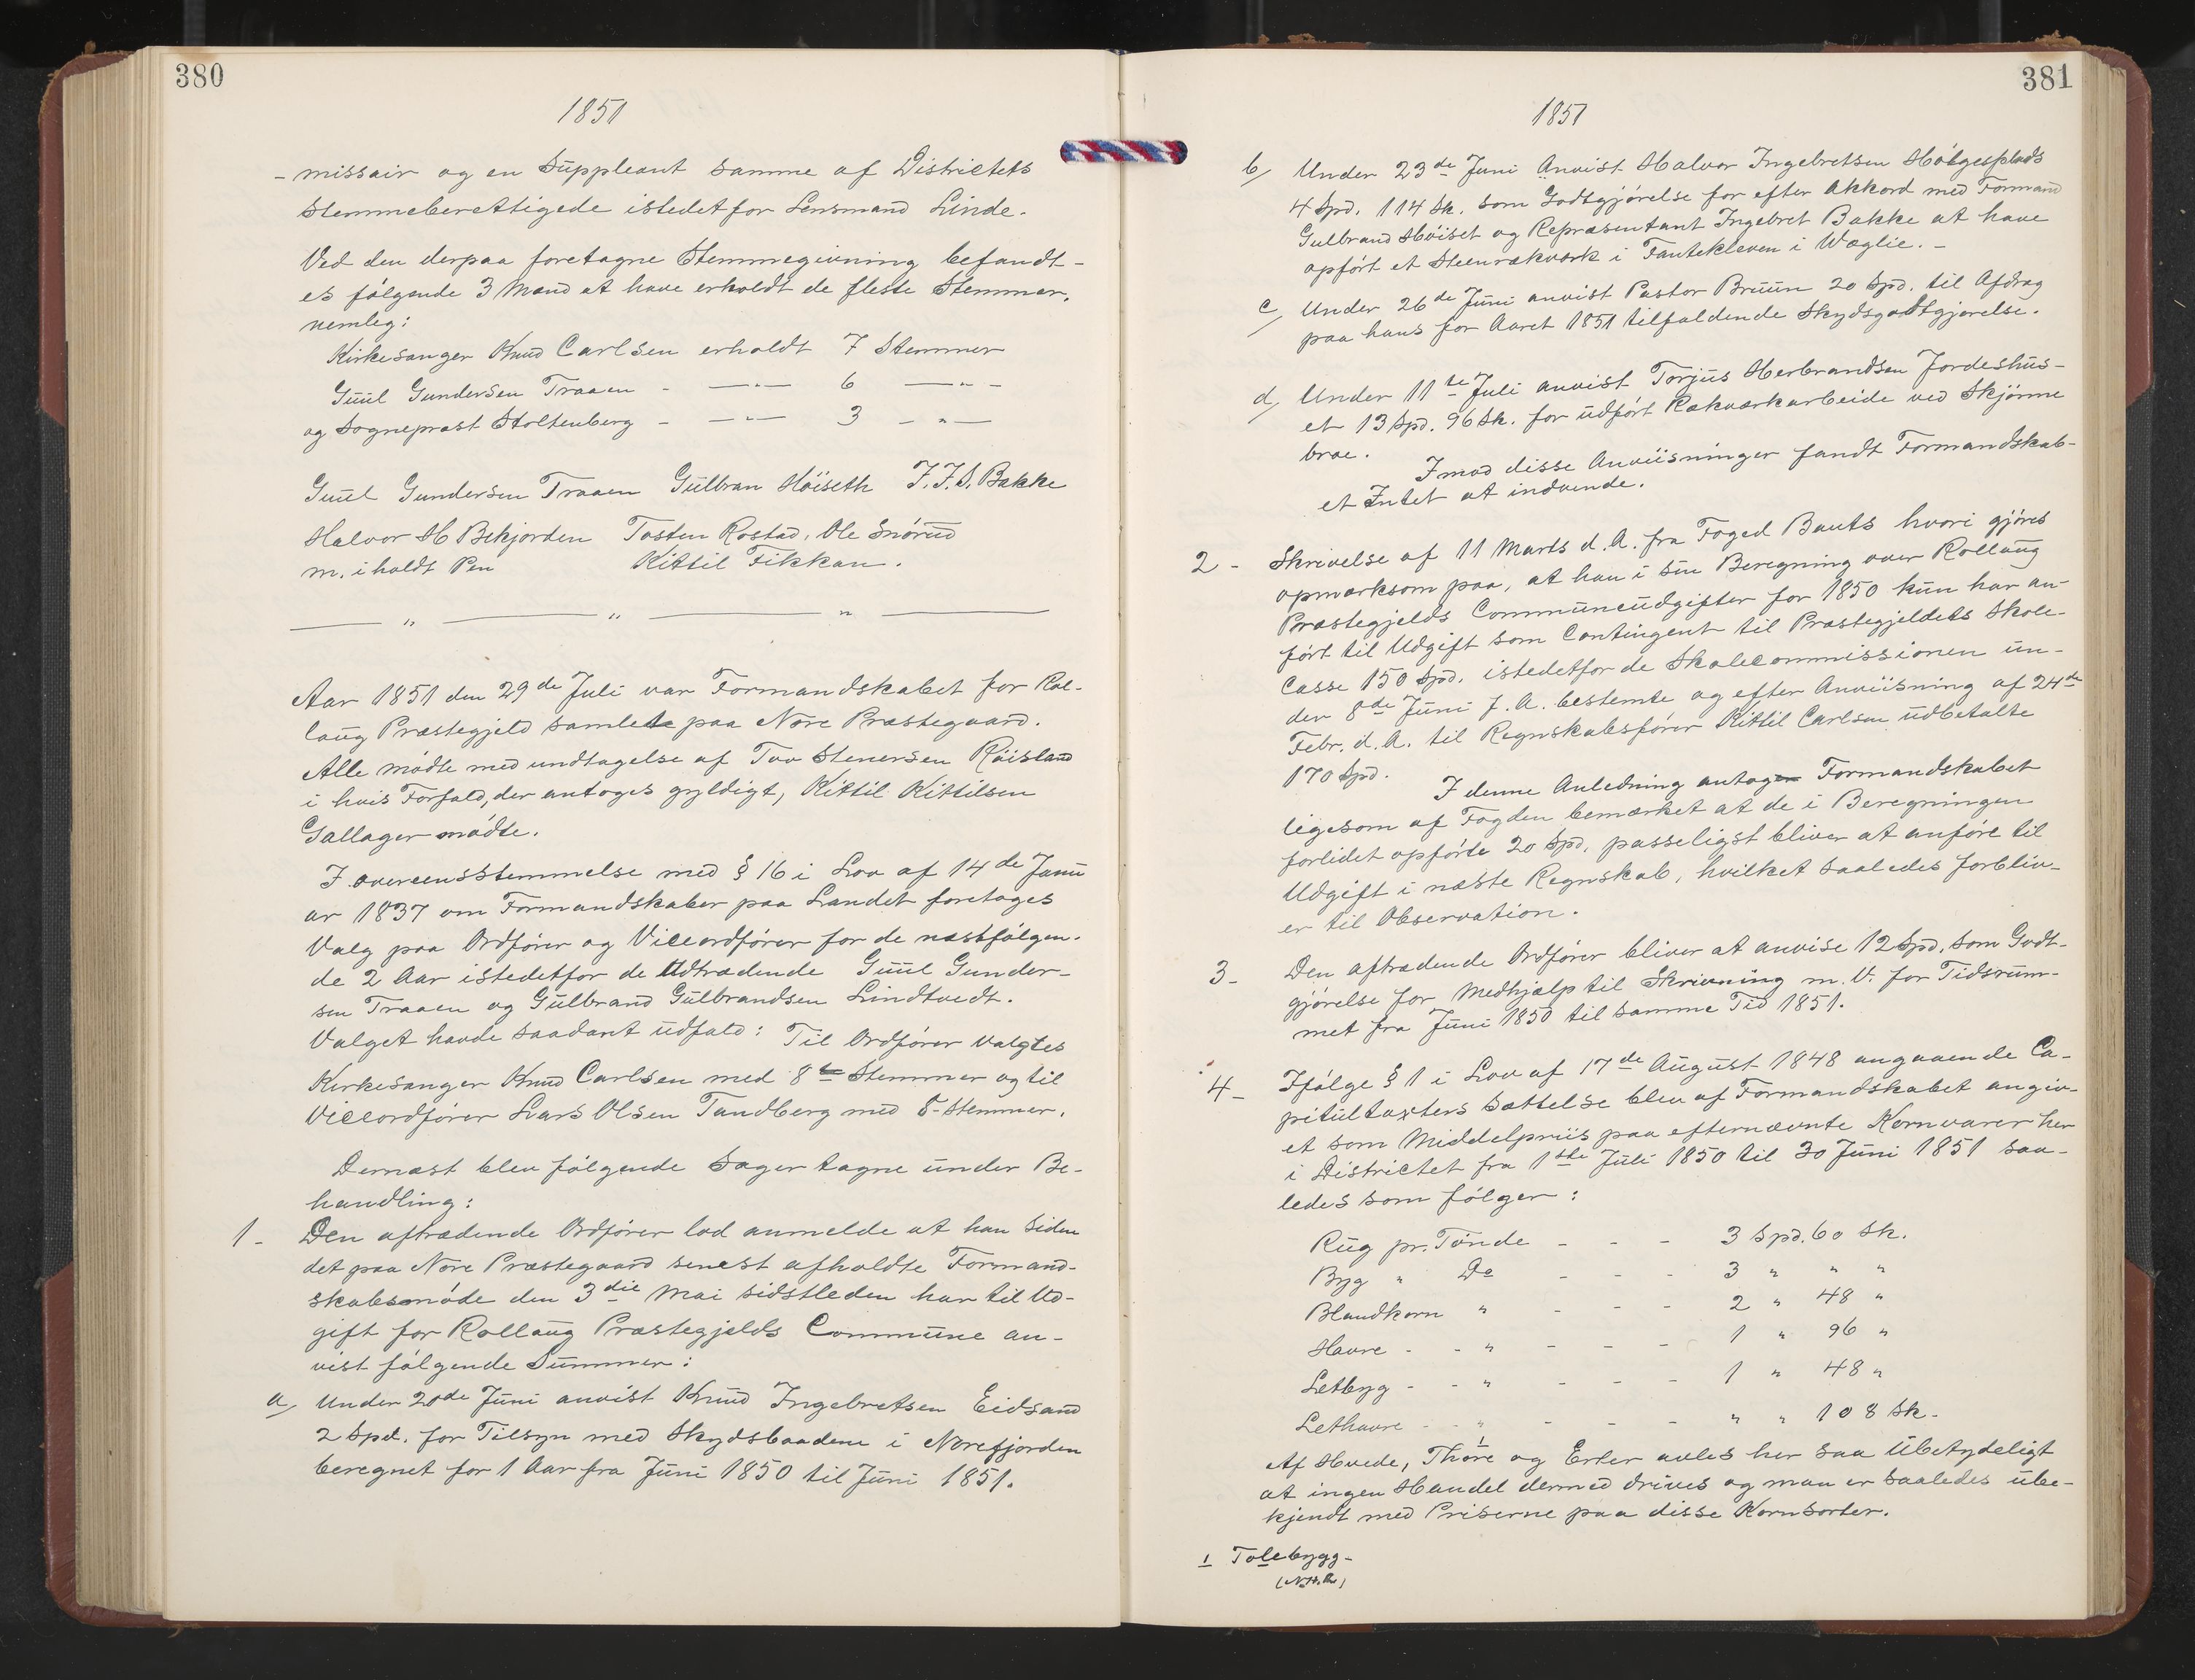 380
1851
- missair og en Suppleant samme af Districtets
Stemmeberettigede istedetfor Lensmand Linde.
Ved den derpaa foretagne Stemmegivning befandt-
es følgende 3 Mænd at have erholdt de fleste Stemmer,
nemlig:
Kirkesanger Knud Carlsen erholdt 7 Stemmer
Guul Gundersen Traaen - —"— 6 —"—
og Sognepræst Stoltenberg - —"— 3 —"—
Guul Gundersen Traaen Gulbran Höiseth J.J.S. Bakke
Halvor H Bekjorden Tosten Rostad, Ole Snørud
m. i holdt Pen Kittil Fikkan.
— " — " — " —
Aar 1851 den 29de Juli var Formandskabet for Rol-
laug Præstegjeld samlede paa Nore Præstegaard.
Alle mødte med undtagelse af Tov Stenersen Röisland
i hvis Forfald, der antoges gyldigt, Kittil Kittilsen
Gallager mødte.
I overeensstemmelse med § 16 i Lov af 14de Janu
ar 1837 om Formandskaber paa Landet foretoges
Valg paa Ordfører og Viceordfører for de næstfølgen-
de 2 Aar istedetfor de Udtrædende Guul Gunder-
sen Traaen og Gulbrand Gulbrandsen Lindtvedt.
Valget havde saadant udfald: Til Ordfører valgtes
Kirkesanger Knud Carlsen med 8te Stemmer og til
Viceordfører Lars Olsen Tandberg med 5-Stemmer.
Dernæst blev følgende Sager tagne under Be-
handling:
1- Den aftrædende Ordfører lod anmelde at han siden
det paa Nore Præstegaard senest afholdte Formand-
skabsmøde den 3die Mai sidstleden har til Ud-
gift for Rollaug Præstegjelds Commune an-
vist følgende Summer:
a/ Under 20de Juni anvist Knud Ingebretsen Eidsand
2 Spd. for Tilsyn med Skydsbaadene i Norefjorden
beregnet for 1 Aar fra Juni 1850 til Juni 1851.
381
1851
b/ Under 23de Juni Anvist Halvor Ingebretsen Helgesplads
4 Spd. 114 Sk. som Godtgjørelse for efter Akkord med Formand
Gulbrand Höiset og Repræsentant Ingebret Bakke at have
opført et Steenrækværk i Fantekleven i Wæglie. -
c/ Under 26de Juni anvist Pastor Bruun 20 Spd. til Afdrag
paa hans for Aaret 1851 tilfaldende Skydsgodtgjørelse.
d/ Under 11te Juli anvist Torjus Herbrandsen Jordeshus-
et 13 Spd. 96 Sk. for udført Rækværkarbeide ved Skjønne
broe.
Imod disse Anviisninger fandt Formandskab-
et Intet at indvende.
2- Skrivelse af 11 Marts d.A. fra Foged Bauts hvori gjøres
opmærksom paa, at han i sin Beregning over Rollaug
Præstegjelds Communeudgifter for 1850 kun har an-
ført til Udgift som Contingent til Præstegjeldets Skole-
Casse 150 Spd. istedetfor de Skolecommissionen un-
der 8de Juni f.A. bestemte og efter Anviisning af 24de
Febr. d.A. til Regnskabsfører Kittil Carlsen udbetalte
170 Spd.
I denne Anledning antoges Formandskabet
ligesom af Fogden bemærket at de i Beregningen
forlidet opførte 20 Spd. passeligst bliver at anføre til
Udgift i næste Regnskab, hvilket saaledes forbliv-
er til Observation.
3- Den aftrædende Ordfører bliver at anvise 12 Spd. som Godt-
gjørelse for Medhjælp til Skrivning m.V. for Tidsrum-
met fra Juni 1850 til samme Tid 1851.
4- Ifølge § 1 i Lov af 17de August 1848 angaaende Ca-
pitultaxters Sættelse blev af Formandskabet angiv-
et som Middelpriis paa efternævnte Kornvarer her
i Districtet fra 1ste Juli 1850 til 30 Juni 1851 saa-
ledes som følger:
Rug pr. Tønde - - - 3 Spd. 60 Sk.
Byg " Do - - - 3 " " "
Blandkorn " - - - 2 " 48 "
Havre - - " - - - 1 " 96 "
Letbyg - - " - - - 1 " 48 "
Lethavre - - " - - - " " 108 Sk.
Af Hvede, Thore¹ og Erter avles her saa Ubetydeligt
at ingen Handel dermed drives og man er saaledes ube-
kjendt med Priserne paa disse Kornsorter.
1 Tolebygg-